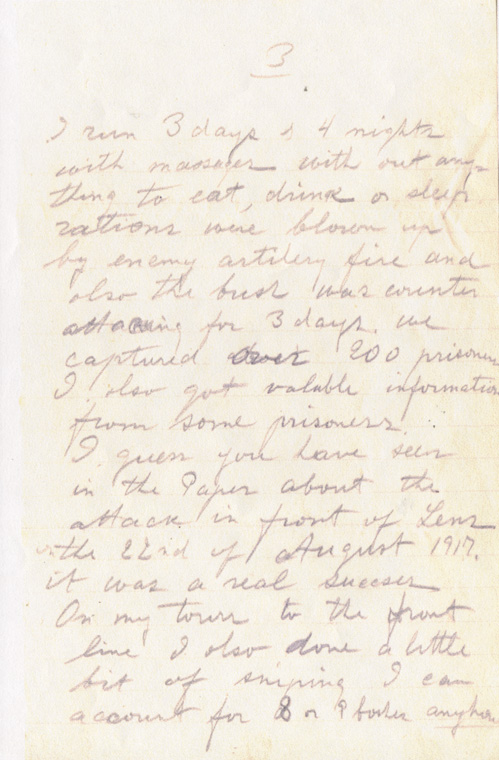 3
I run 3 days & 4 nights
with massages with out any-
thing to eat, drink or sleep
rations were blown up
by enemy artillery fire and
also the bosh was counter
attacking for 3 days. we
captured over 200 prisoners
I also got valuble information
from some prisoners.
I guess you have seen
in the Paper about the
attack in front of Lens
on the 22nd of August 1917.
it was a real succser
On my tours to the front
line I also done a little
bit of sniping I can
account for 8 or 9 boshes anyhow